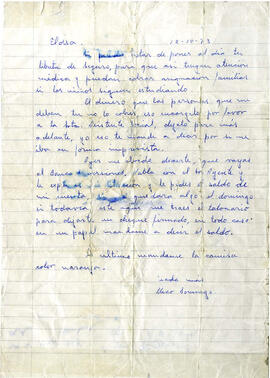 Elossa 12-10-73
tratar de poner al día tu
libreta de seguro, para que asi tengan atención
médica y puedan cobrar asignación familiar
si los niños siguen estudiando.
El dinero que las personas que me
deben, tu no lo cobres, eso encargalo por favor
a la tota. Insisto déjalo para más
adelante, yo eso te mande a decir por si me
iba en forma imprevista.
Ayer me olvidé decirte que vayas
al Banco, habla con el Agente y
le la situación y le pides el saldo de
mi cuenta, que queda algo, el domingo
si todavía estoy aquí me traes el talonario
para dejarte un cheque firmado, en todo caso
en un papel mandame a decir el saldo.
mandame la camisa
color naranja.
nada más
Domingo